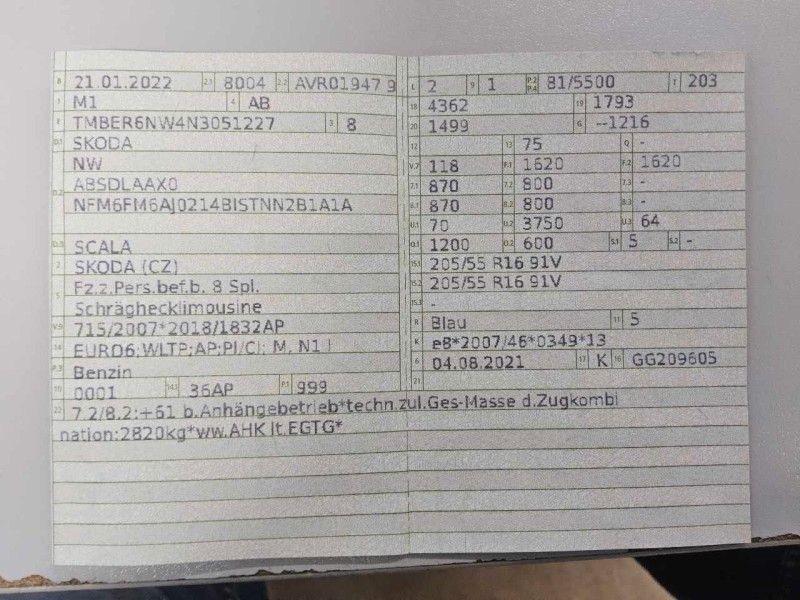 B 21.01.2022 2.1 8004 2.2 AVR01947 9
J M1 4 AB
E TMBER6NW4N3051227 3 8
D.1 SKODA
NW
D.2 ABSDLAAX0
NFM6FM6AJ0214BISTNN2B1A1A
D.3 SCALA
2 SKODA (CZ)
5 Fz.z.Pers.bef.b. 8 Spl.
Schräghecklimousine
V.9 715/2007*2018/1832AP
14 EURO6;WLTP;AP;PI/CI; M, N1 I
P.3 Benzin
10 0001 14.1 36AP P.1 999
L 2 9 1 P.2 P.4 81/5500 T 203
18 4362 19 1793
20 1499 G --1216
12 13 75 Q -
V.7 118 F.1 1620 F.2 1620
7.1 870 7.2 800 7.3 -
8.1 870 8.2 800 8.3 -
U.1 70 U.2 3750 U.3 64
O.1 1200 O.2 600 S.1 5 S.2 -
15.1 205/55 R16 91V
15.2 205/55 R16 91V
15.3 -
R Blau 11 5
K e8*2007/46*0349*13
6 04.08.2021 17 K 16 GG209605
21
22 7.2/8.2:+61 b.Anhängebetrieb*techn.zul.Ges-Masse d.Zugkombi
nation:2820kg*ww.AHK lt.EGTG*